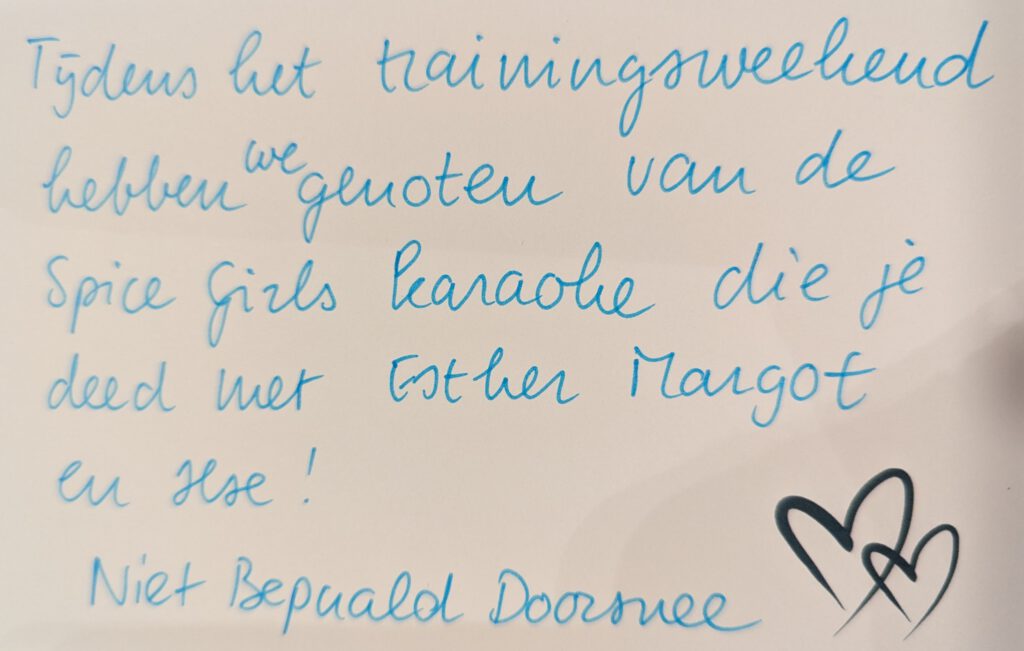 Tijdens het trainingsweekend
hebben we genoten van de
Spice Girls karaoke die je
deed met Esther Margot
en Ilse!
Niet Bepaald Doorsnee